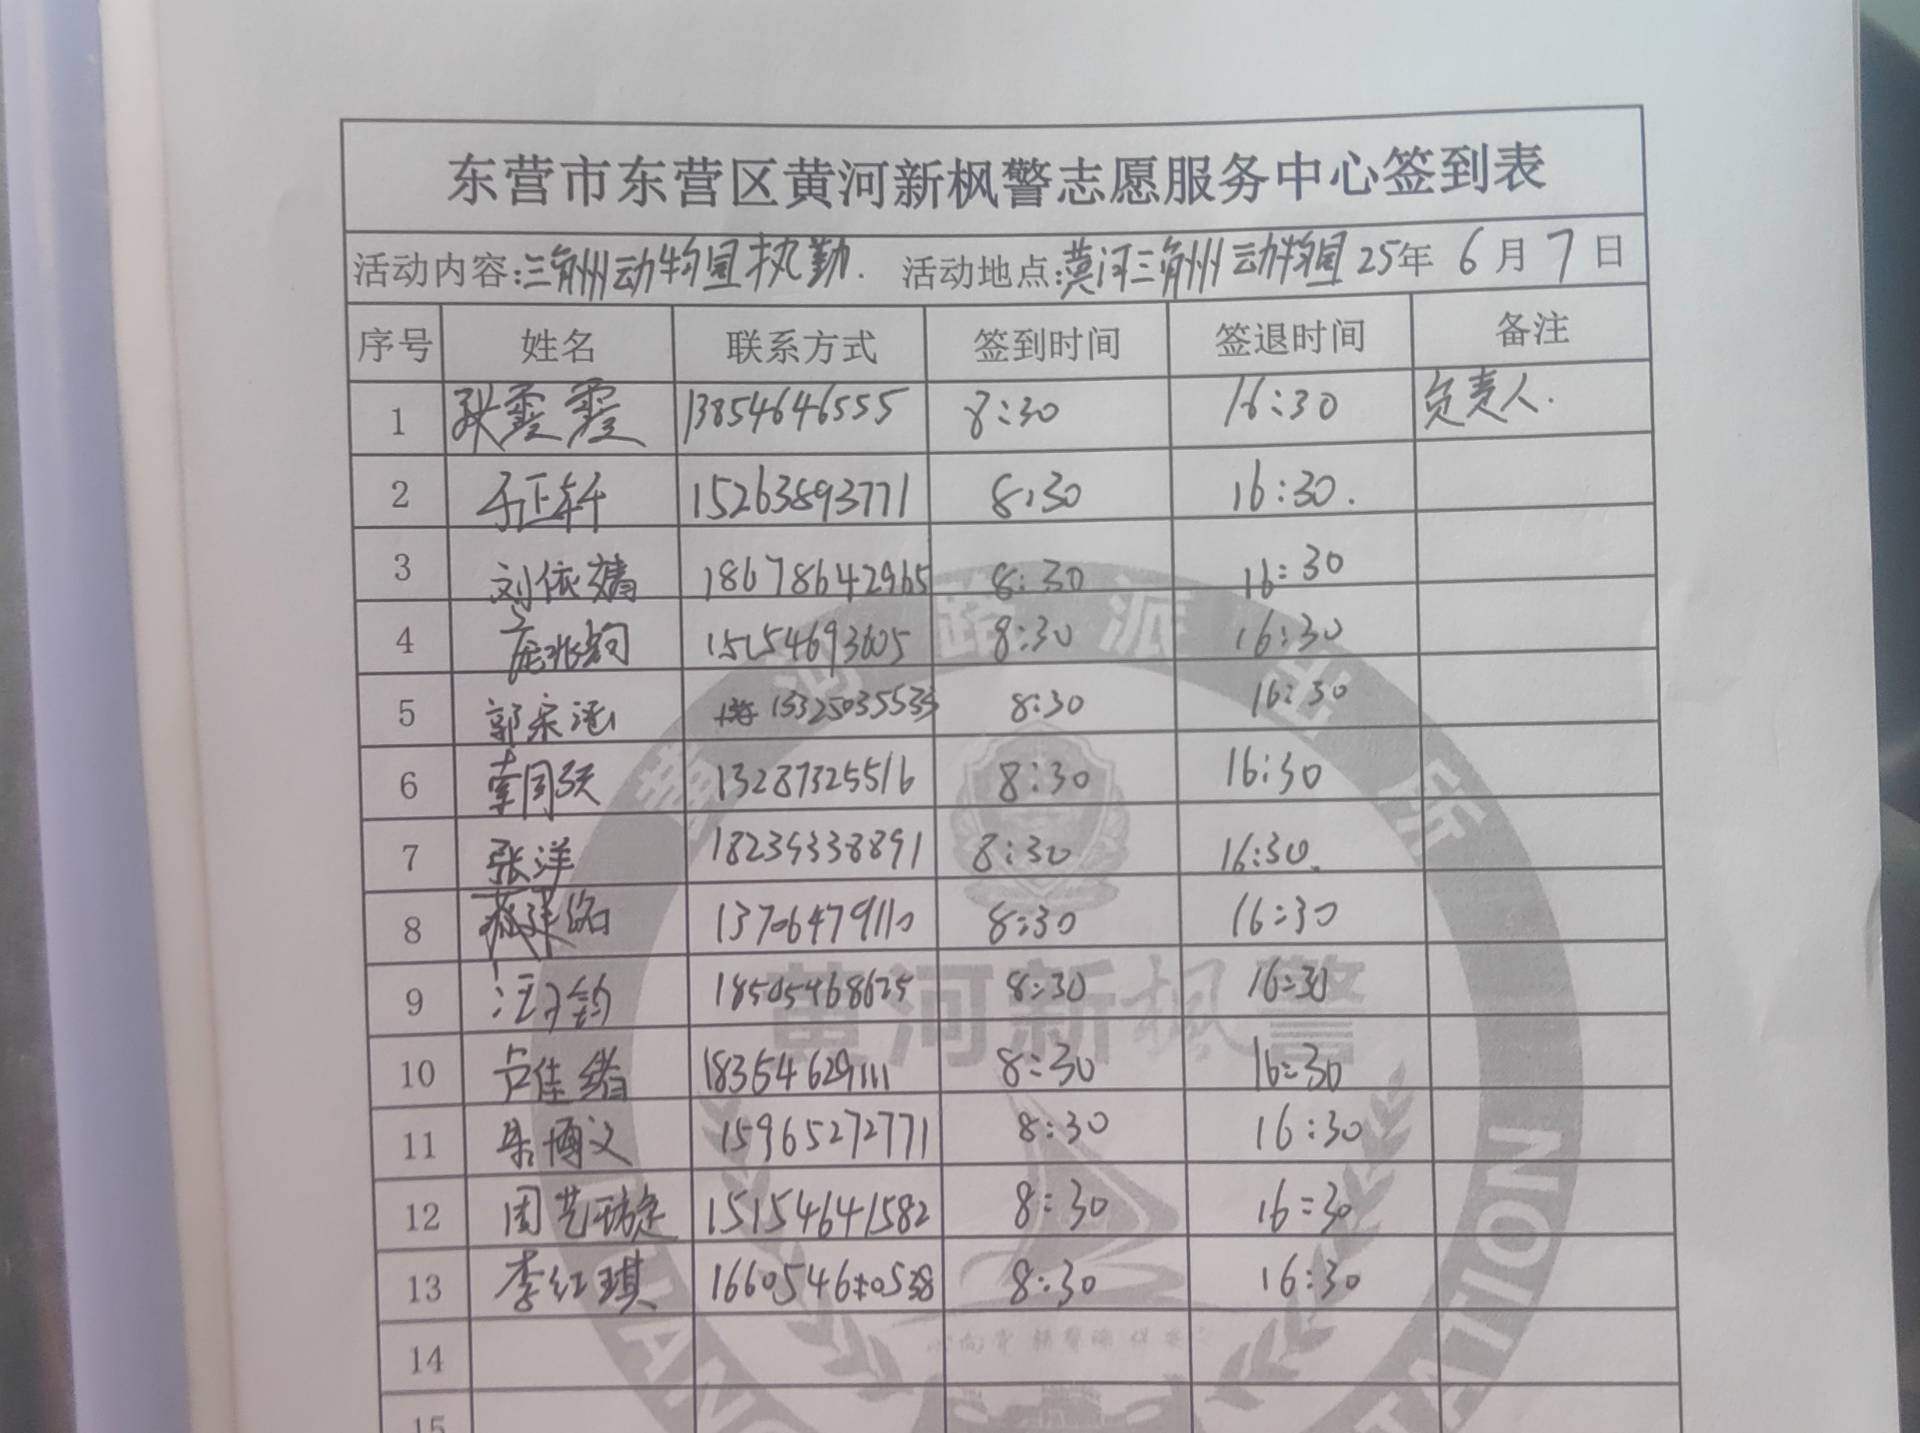 东营市东营区黄河新枫警志愿服务中心签到表
活动内容:三角州动物园执勤. 活动地点:黄河三角州动物园 25年 6月7日
序号 姓名 联系方式 签到时间 签退时间 备注
1 霞 13854646555 8:30 16:30 负责人.
2 于正轩 15263893771 8:30 16:30.
3 刘依婧 18678642965 8:30 16:30
4 15154693605 8:30 16:30
5 郭宗 13325035533 8:30 16:30
6 13287325516 8:30 16:30
7 张洋 18239338891 8:30 16:30.
8 13706479110 8:30 16:30
9 汪 18505468625 8:30 16:30
10 卢佳绪 18354629111 8:30 16:30
11 朱博文 15965272771 8:30 16:30
12 周艺璇 15154641582 8:30 16:30
13 李红琪 8:30 16:30
14
15
黄河路派出所
黄河新枫警
HUANG
STATION